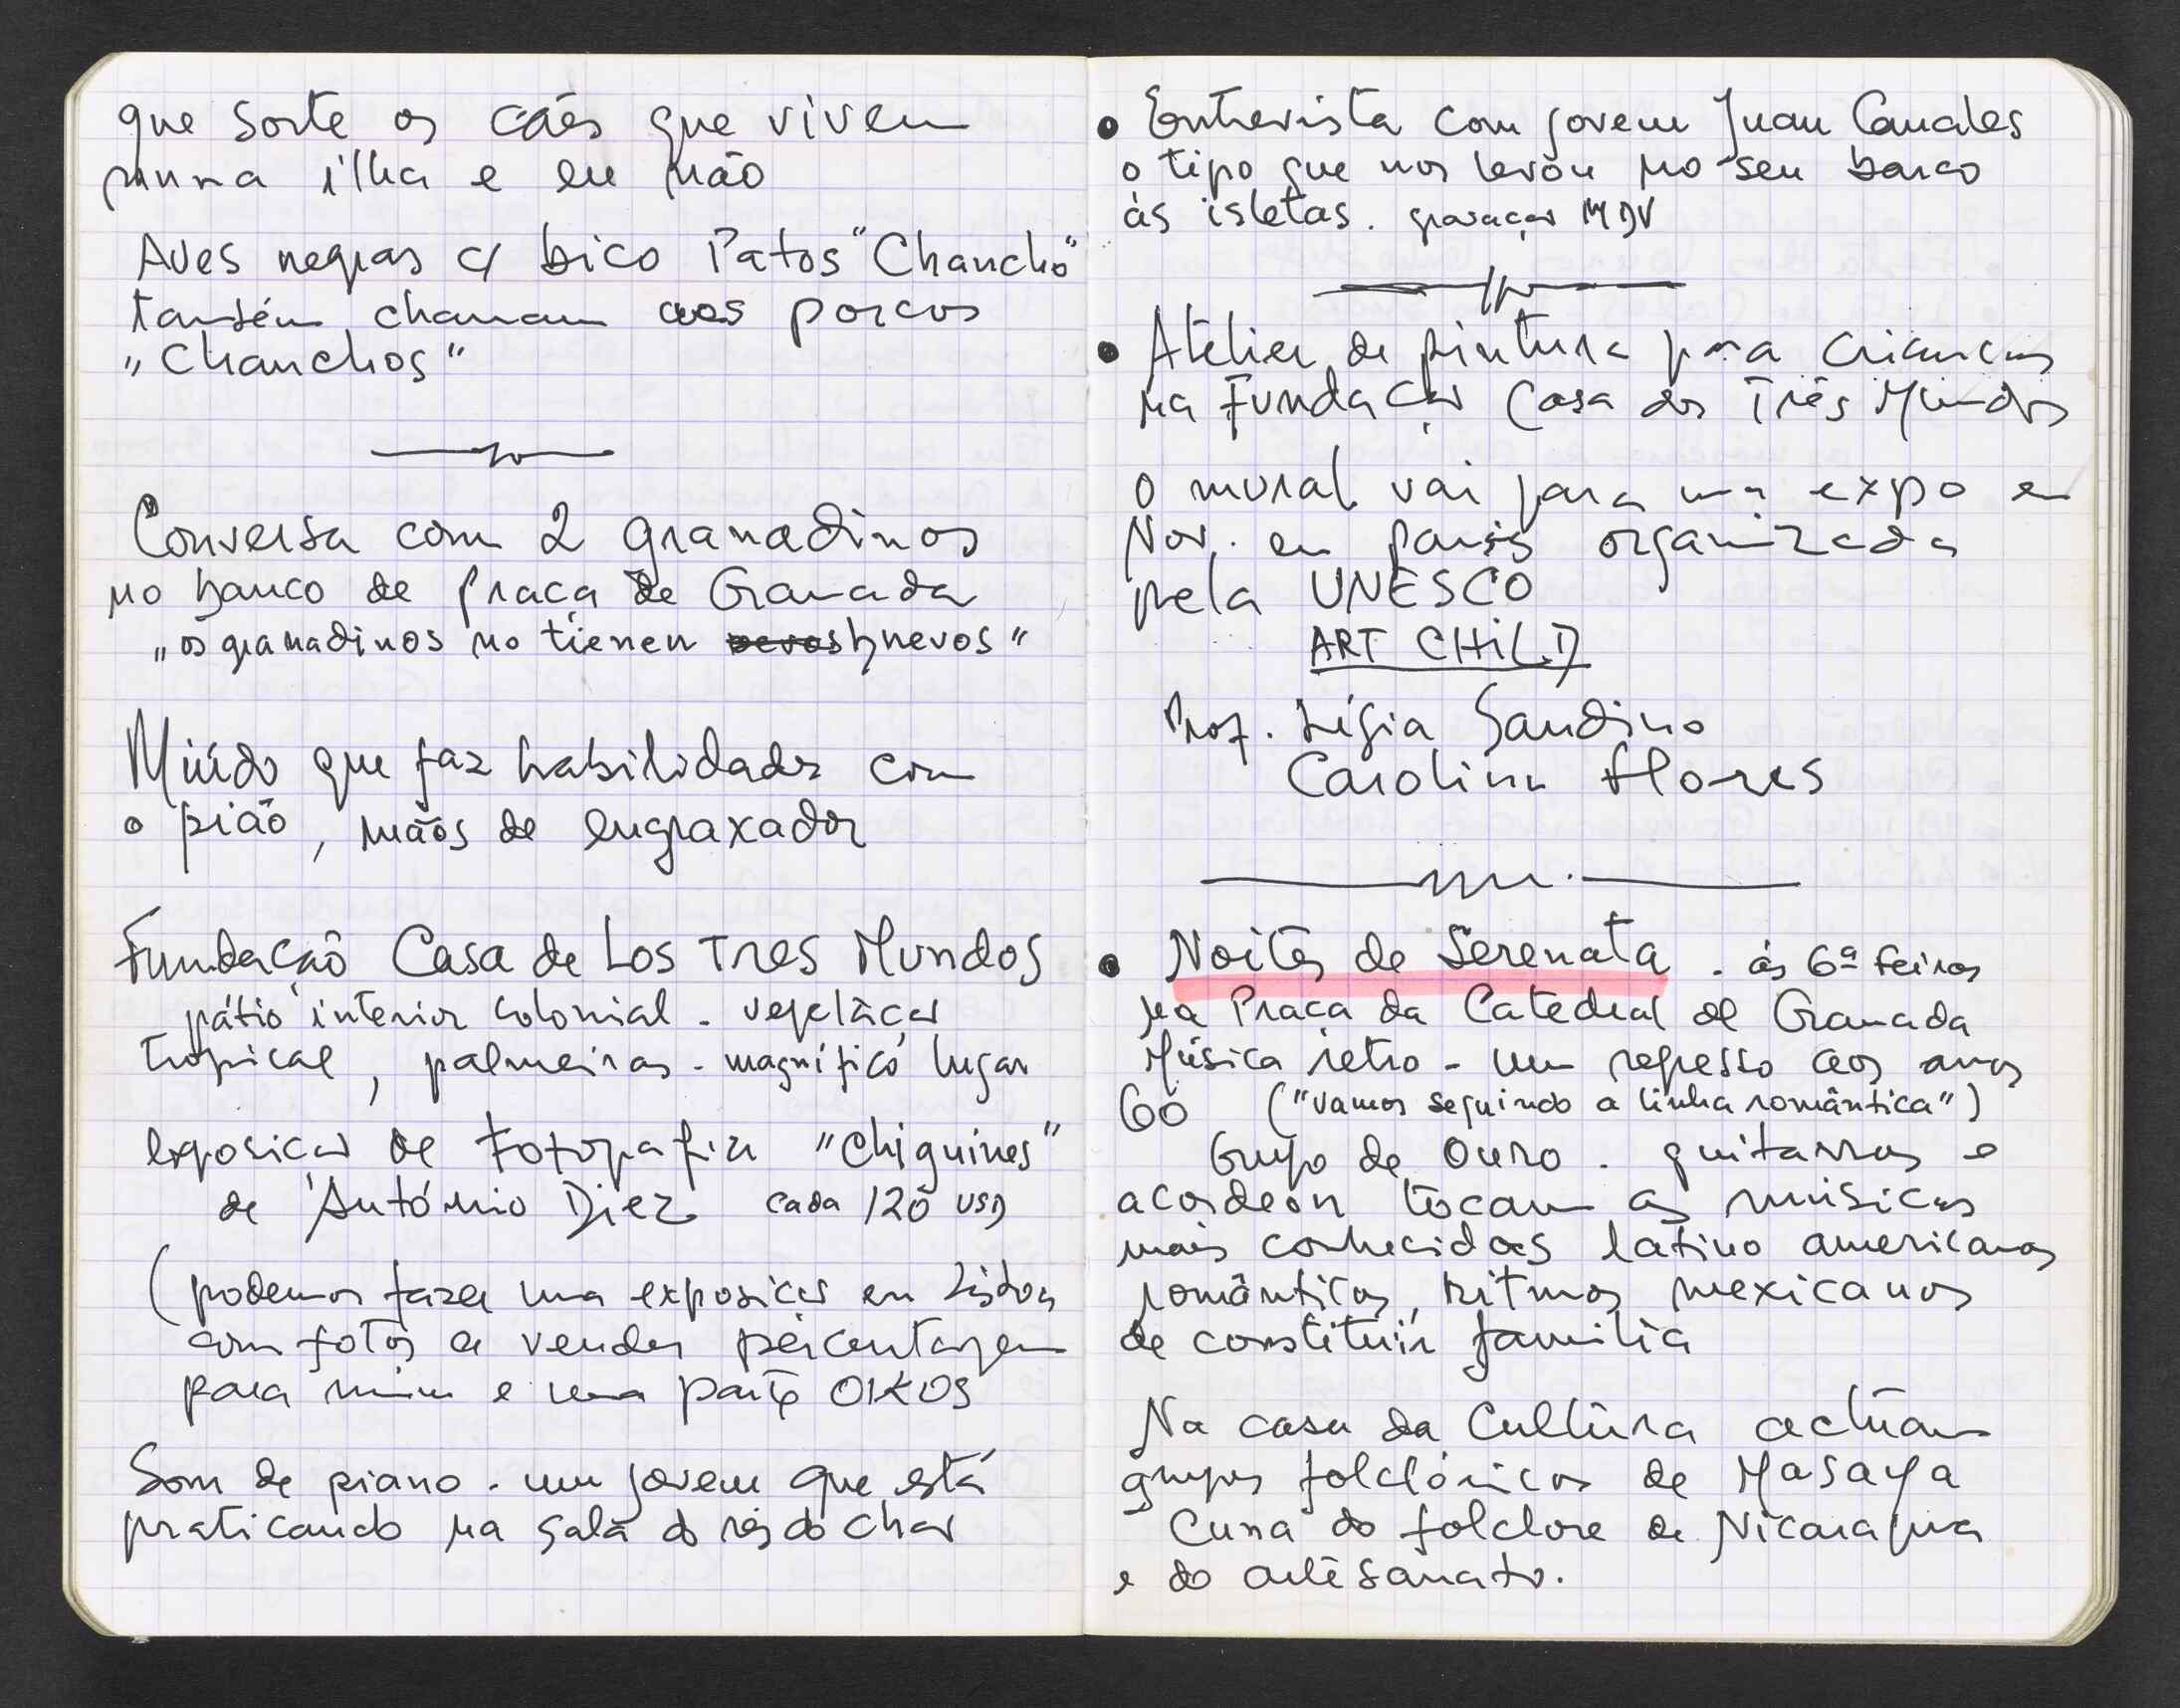 que sorte os cães que vivem
numa ilha e eu não
Aves negras c/ bico Patos "Chancho"
também chamam aos porcos
"Chanchos"
Conversa com 2 granadinos
no banco de praça de Granada
"os granadinos no tienen huevos"
Miúdo que faz habilidades com
o pião, mãos de engraxador
Fundação Casa de Los Tres Mundos
pátio interior colonial. vegetação
tropical, palmeiras - magnífico lugar
exposição de Fotografia "Chiguines"
de António Diez cada 120 USD
(podemos fazer uma exposição em Lisboa
com fotos a vender percentagem
para mim e uma parte OIKOS
Som de piano. um jovem que está
praticando na sala do rés do chão
• Entrevista com jovem Juan Canales
o tipo que nos levou no seu barco
às isletas. gravação MDV
• Atelier de pintura para crianças
na Fundação Casa dos Três Mundos
O mural vai para uma expo em
Nov. em paris organizada
pela UNESCO
ART CHILD
Prof. Lígia Sandino
Carolina Flores
• Noites de Serenata. às 6ª feiras
na Praça da Catedral de Granada
Música retro - um regresso aos anos
60 ("vamos seguindo a linha romântica")
Grupo de Ouro. guitarras e
acordeon tocam as músicas
mais conhecidas latino americanas
românticas, ritmos mexicanos
de constituir família
Na casa da Cultura actuam
grupos folclóricos de Masaya
Cuna do folclore de Nicaragua
e do artesanato.